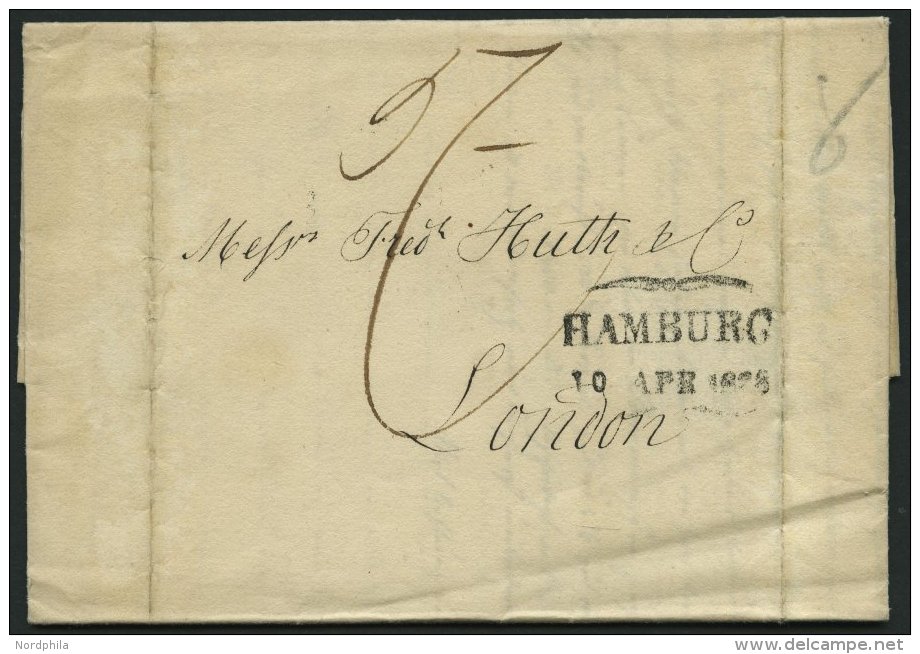 Messrs Fredk. Huth & Co
HAMBURG
10 APR 1828
London
Nordphila
delcampe.net